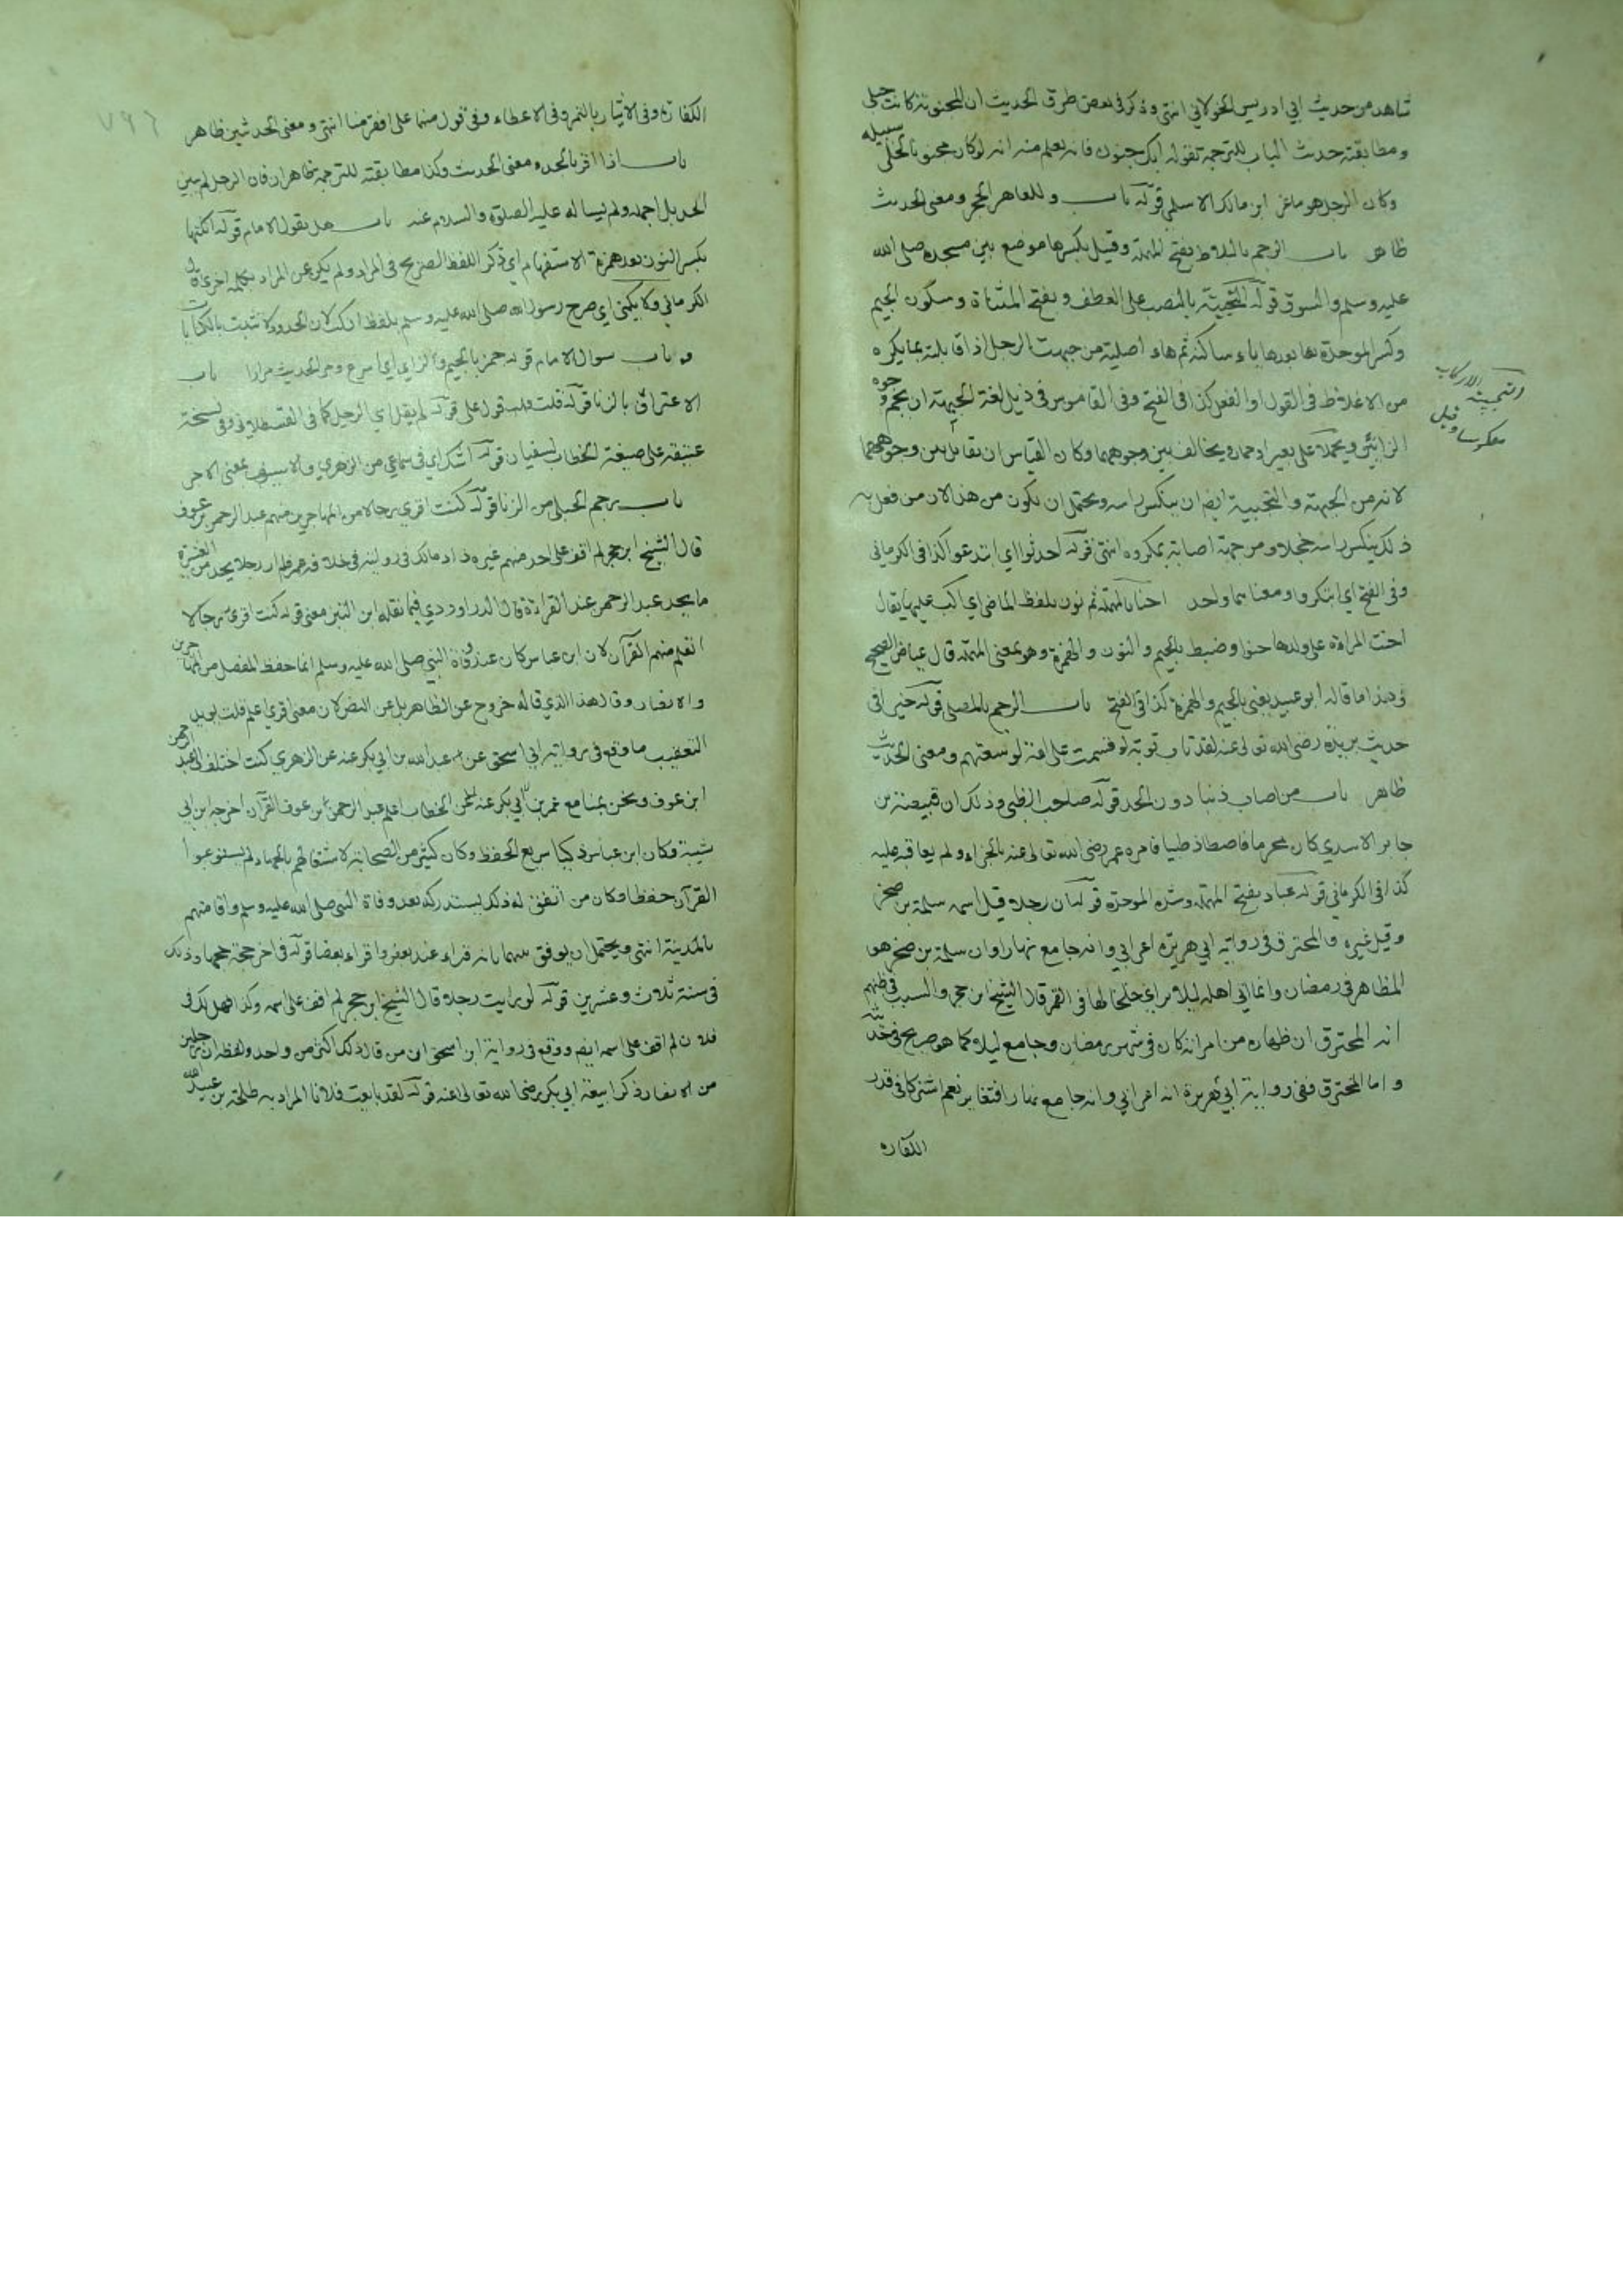 شاهد من حديث ابي ادريس الخولاني انتهى وذكر في بعض طرق الحديث ان المجنونة كانت حبلى
ومطابقة حديث الباب للترجمة تفوله ابك جنون فانه يعلم منه انه لو كان مجنونا لخلى سبيله
وكان الرجل هو ماعز ابن مالك الاسلمي قوله باب وللعاهر الحجر ومعنى الحديث
ظاهر باب الرجم بالبلاط بفتح الموحدة وقيل بكسرها موضع بين مسجده صلى الله
عليه وسلم والسوق قوله التجبية بالنصب على العطف وبفتح المثناة وسكون الجيم
وكسر الموحدة بعدها ياء ساكنة ثم هاء اصلية من جبهت الرجل اذا قابلته بما يكره
من الاغلاظ في القول او الفعل كذا في الفتح وفي القاموس في ذيل لغة الجبهة ان يحمم وجوه
الزانيين ويحملا على بعير او حمار ويخالف بين وجوههما وكان القياس ان يقابل بين وجوههما
لانه من الجبهة والتجبية ايضا ان ينكس راسه ويحتمل ان يكون من هذا لان من فعل به
ذلك ينكس راسه خجلا ومن جبهة اصابته بمكروه انتهى قوله احدثوا اي ابتدعوا كذا في الكرماني
وفي الفتح اي ابتكروا ومعناهما واحد احنا بالمهملة ثم نون بلفظ الماضي اي اكب عليها يقال
احنت المراة على ولدها حنوا وضبط بالجيم والنون والهمزة وهو بمعنى المهملة قال عياض الصحيح
في هذا ما قاله ابو عبيد يعني بالجيم والهمزة كذا في الفتح باب الرجم بالمصلى قوله خيرا في
حديث بريدة رضي الله تعالى عنه لقد تاب توبة لو قسمت على امة لوسعتهم ومعنى الحديث
ظاهر باب من اصاب ذنبا دون الحد قوله صاحب الظبي وذلك ان قبيصة بن
جابر الاسدي كان محرما فاصطاد ظبيا فامره عمر رضي الله تعالى عنه بالجزاء ولم يعاقبه عليه
كذا في الكرماني قوله عباد بفتح المهملة وشدة الموحدة قوله ان رجلا قيل اسمه سلمة بن صخر
وقيل غيره والمحترق في رواية ابي هريرة اعرابي وانه جامع نهارا وان سلمة بن صخر هو
المظاهر في رمضان وانما اتى اهله ليلا براي خلخالها في القمر قال الشيخ ابن حجر والسبب في ظنهم
انه المحترق ان ظهاره من امراته كان في شهر رمضان وجامع ليلا كما هو صريح في حديثه
واما المحترق ففي رواية ابي هريرة انه اعرابي وانه جامع نهارا فتغايرا نعم اشتركا في قدر
الكفاره
والتجبية الاركاب
معكوسا وقيل
الكفارة وفي الاتيان بالتمر وفي الاعطاء وفي قول منهما على افقر منا انتهى ومعنى الحدثين ظاهر
باب اذا اقر بالحد ومعنى الحديث وكذا مطابقته للترجمة ظاهران فان الرجل لم يبين
الحد بل اجمله ولم يساله عليه الصلوة والسلام عنه باب هل يقول الامام قوله انكتها
بكسر النون بعد همزة الاستفهام اي ذكر اللفظ الصريح في المراد ولم يكن عن المراد بكلمة اخرى قال
الكرماني ولا يكنى اي صرح رسول الله صلى الله عليه وسلم بلفظ انكت لان الحدود لا تثبت بالكنايات
باب سوال الامام قوله جمز بالجيم والزاي اي اسرع ومر الحديث مرارا باب
الاعتراف بالزنا قوله قلت فلم يقول على قوله لم يقل اي الرجل كما في القسطلاني وفي نسخة
عتيقة على صيغة الخطاب لسفيان قوله اشك اي في سماعي من الزهري
باب رجم الحبلى من الزنا قوله كنت اقري رجالا من المهاجرين منهم عبد الرحمن بن عوف
قال الشيخ ابن حجر لم اقف على احد منهم غيره زاد مالك في روايته في خلافة عمر فلم ار رجلا يجد من القشعريرة
ما يجد عبد الرحمن عند القراءة قال الداوردي فيما نقله ابن التين معنى قوله كنت اقري رجالا
اتعلم منهم القرآن لان ابن عباس كان عند وفاة النبي صلى الله عليه وسلم انما حفظ المفصل من المهاجرين
والانصار وقال هذا الذي قاله خروج عن الظاهر بل عن النص لان معنى اقري اعلم قلت يويد
التعقيب ما وقع في رواية ابي اسحق عن عبد الله بن ابي بكر عنه عن الزهري كنت اختلف الى عبد الرحمن
ابن عوف ونحن بمنا مع عمر بن الخطاب اعلم عبد الرحمن بن عوف القرآن اخرجه ابن ابي
شيبة وكان ابن عباس ذكيا سريع الحفظ وكان كثير من الصحابة لاشتغالهم بالجهاد لم يستوعبوا
القرآن حفظا وكان من اتفق له ذلك يستدركه بعد وفاة النبي صلى الله عليه وسلم واقامتهم
بالمدينة انتهى ويحتمل ان يوفق بينهما بانه قراء عند بعض واقراء بعضا قوله في اخر حجة حجها وذلك
في سنة ثلاث وعشرين قوله لو رايت رجلا قال الشيخ ابن حجر لم اقف على اسمه وكذا هل لك في
فلان لم اقف على اسمه ايضا ووقع في رواية ابن اسحق ان من قال ذلك اكثر من واحد ولفظه ان رجلين
من الانصار ذكرا بيعة ابي بكر رضي الله تعالى عنه قوله لقد بايعت فلانا المراد به طلحة بن عبيد الله